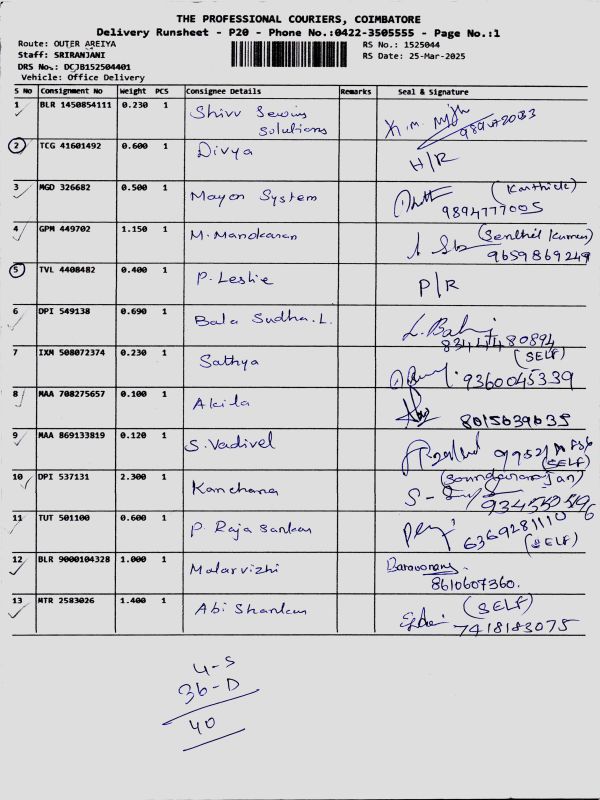 THE PROFESSIONAL COURIERS, COIMBATORE
Delivery Runsheet - P20 - Phone No.:0422-3505555 - Page No.:1
Route: OUTER AREIYA
Staff: SRIRANJANI
DRS No.: DCJB152504401
Vehicle: Office Delivery
RS No.: 1525044
RS Date: 25-Mar-2025
S No Consignment No Weight PCS Consignee Details Remarks Seal & Signature
1 BLR 1450854111 0.230 1 Shivv Sewing
solutions
2 TCG 41601492 0.600 1 Divya H/R
3 MGD 326682 0.500 1 Mayon System (Karthick)
9894777005
4 GPM 449702 1.150 1 M. Manokaran (Senthil Kumar)
9659869249
5 TVL 4408482 0.400 1 P. Leslie P/R
6 DPI 549138 0.690 1 Bala Sudha.L.
7 IXM 508072374 0.230 1 Sathya (SELF)
9360045339
8 MAA 708275657 0.100 1 Akila 8015639635
9 MAA 869133819 0.120 1 S. Vadivel (SELF)
10 DPI 537131 2.300 1 Kanchana (Soundararajan)
11 TUT 501100 0.600 1 P. Raja Sankar 6369281110
(SELF)
12 BLR 9000104328 1.000 1 Malarvizhi
8610607360.
13 MTR 2583026 1.400 1 Abi Shankar (SELF)
7418183075
4-S
36-D
40